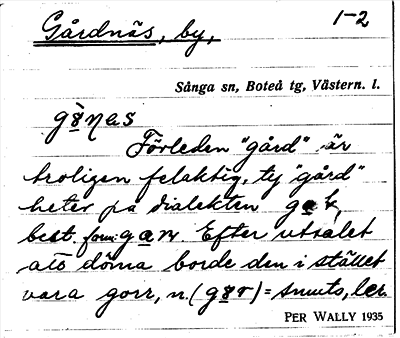 Gårdnäs, by, 1-2
Sånga sn, Boteå tg, Västern. l.
Förleden "gård" är
troligen felaktig, ty "gård"
heter på dialekten
best. form: Efter uttalet
att döma borde den i stället
vara gorr, n. = smuts, ler.
PER WALLY 1935